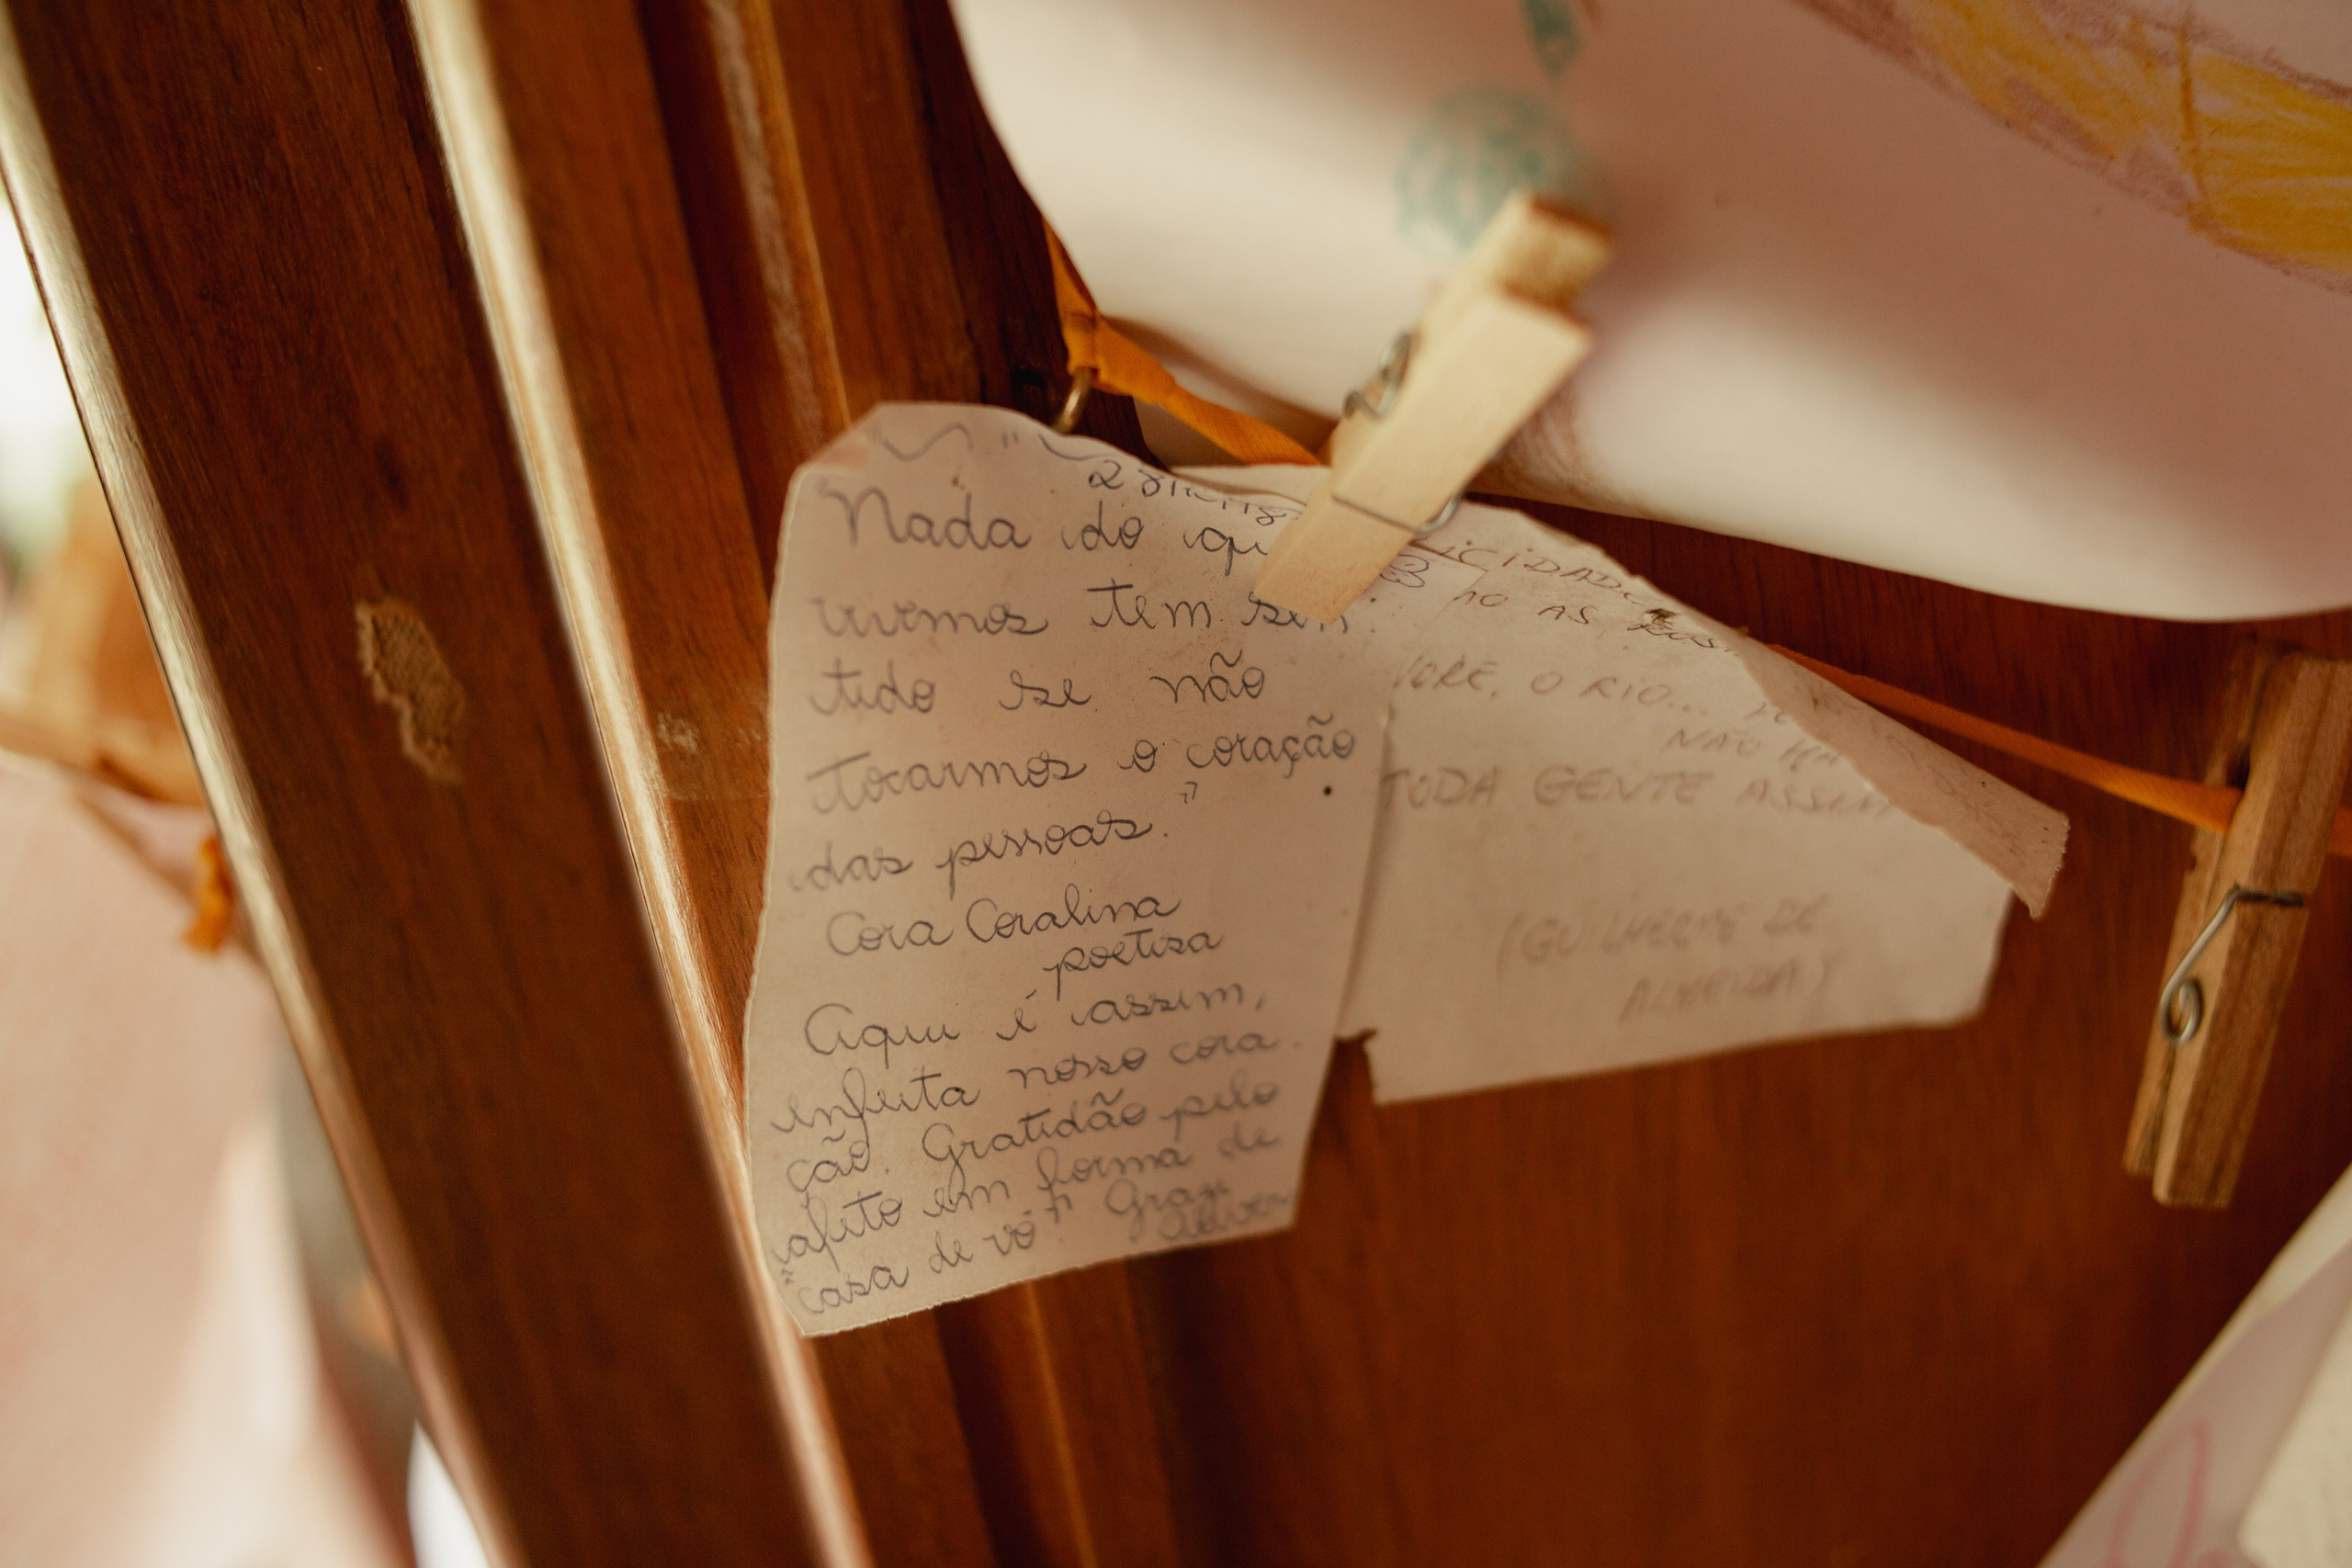 "Nada do
vivemos tem sen-
tido se não
tocarmos o coração
das pessoas."
Cora Coralina
poetisa
Aqui é assim,
enfeita nosso cora-
ção. Gratidão pelo
afeto em forma de
"casa de vó" Grazi
AS
O RIO...
NÃO
TODA GENTE ASSIM
(GUILHERME DE
ALMEIDA)